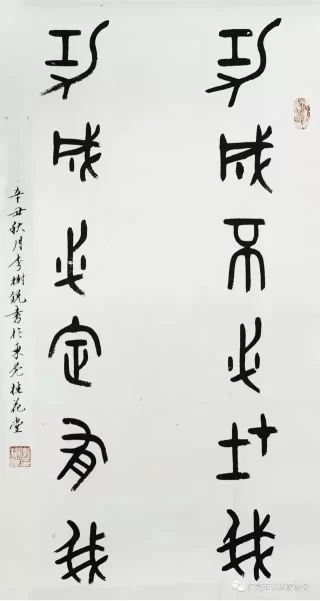 功成不必在我
功成必定有我
辛丑秋月李樹锐书於东莞桂花堂